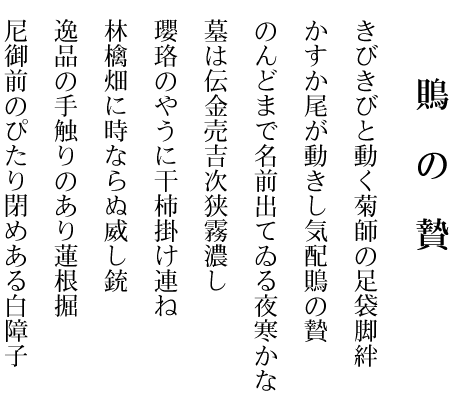 鵙の贄
きびきびと動く菊師の足袋脚絆
かすか尾が動きし気配鵙の贄
のんどまで名前出てゐる夜寒かな
墓は伝金売吉次狭霧濃し
瓔珞のやうに干柿掛け連ね
林檎畑に時ならぬ威し銃
逸品の手触りのあり蓮根掘
尼御前のぴたり閉めある白障子